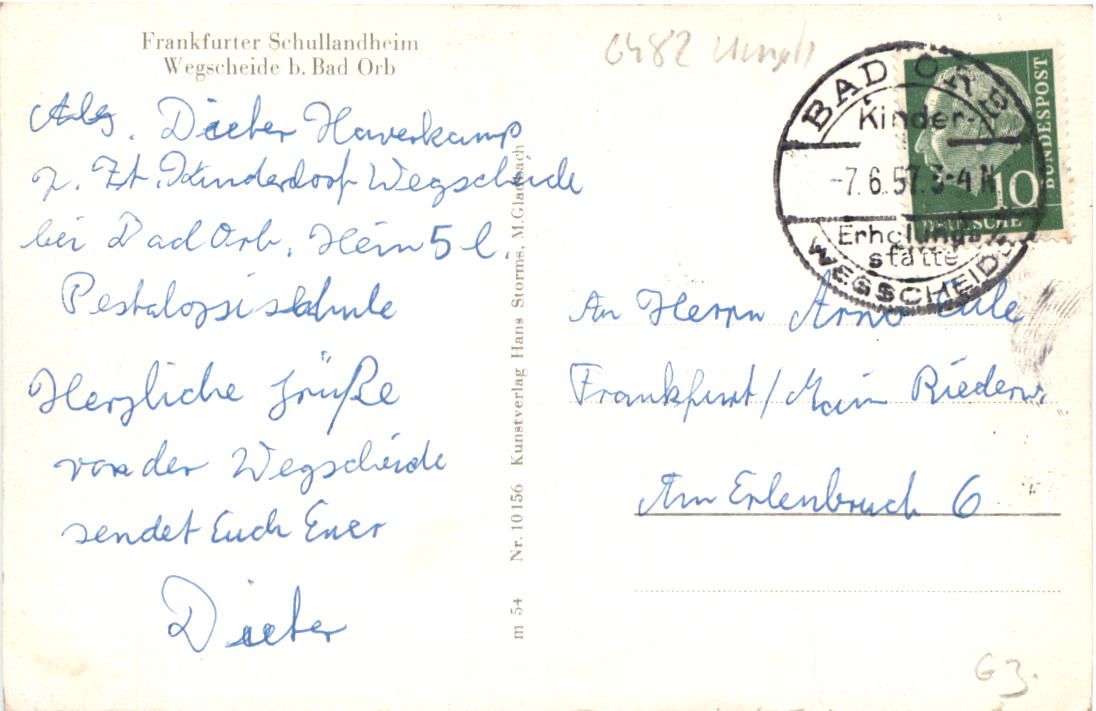 Frankfurter Schullandheim
Wegscheide b. Bad Orb
Abs. Dieter Haverkamp
z. Zt. Kinderdorf Wegscheide
bei Bad Orb, Heim 5 l.
Pestalozzischule
Herzliche Grüße
von der Wegscheide
sendet Euch Euer
Dieter
m 54 Nr. 10156 Kunstverlag Hans Storms, M.Gladbach
6482
BAD ORB
Kinder-
-7.6.57.3-4 N
Erholungs
stätte
WEGSCHEIDE
DEUTSCHE
BUNDESPOST
10
An Herrn Arno Eule
Frankfurt/Main Riederw.
Am Erlenbruch 6
G3.